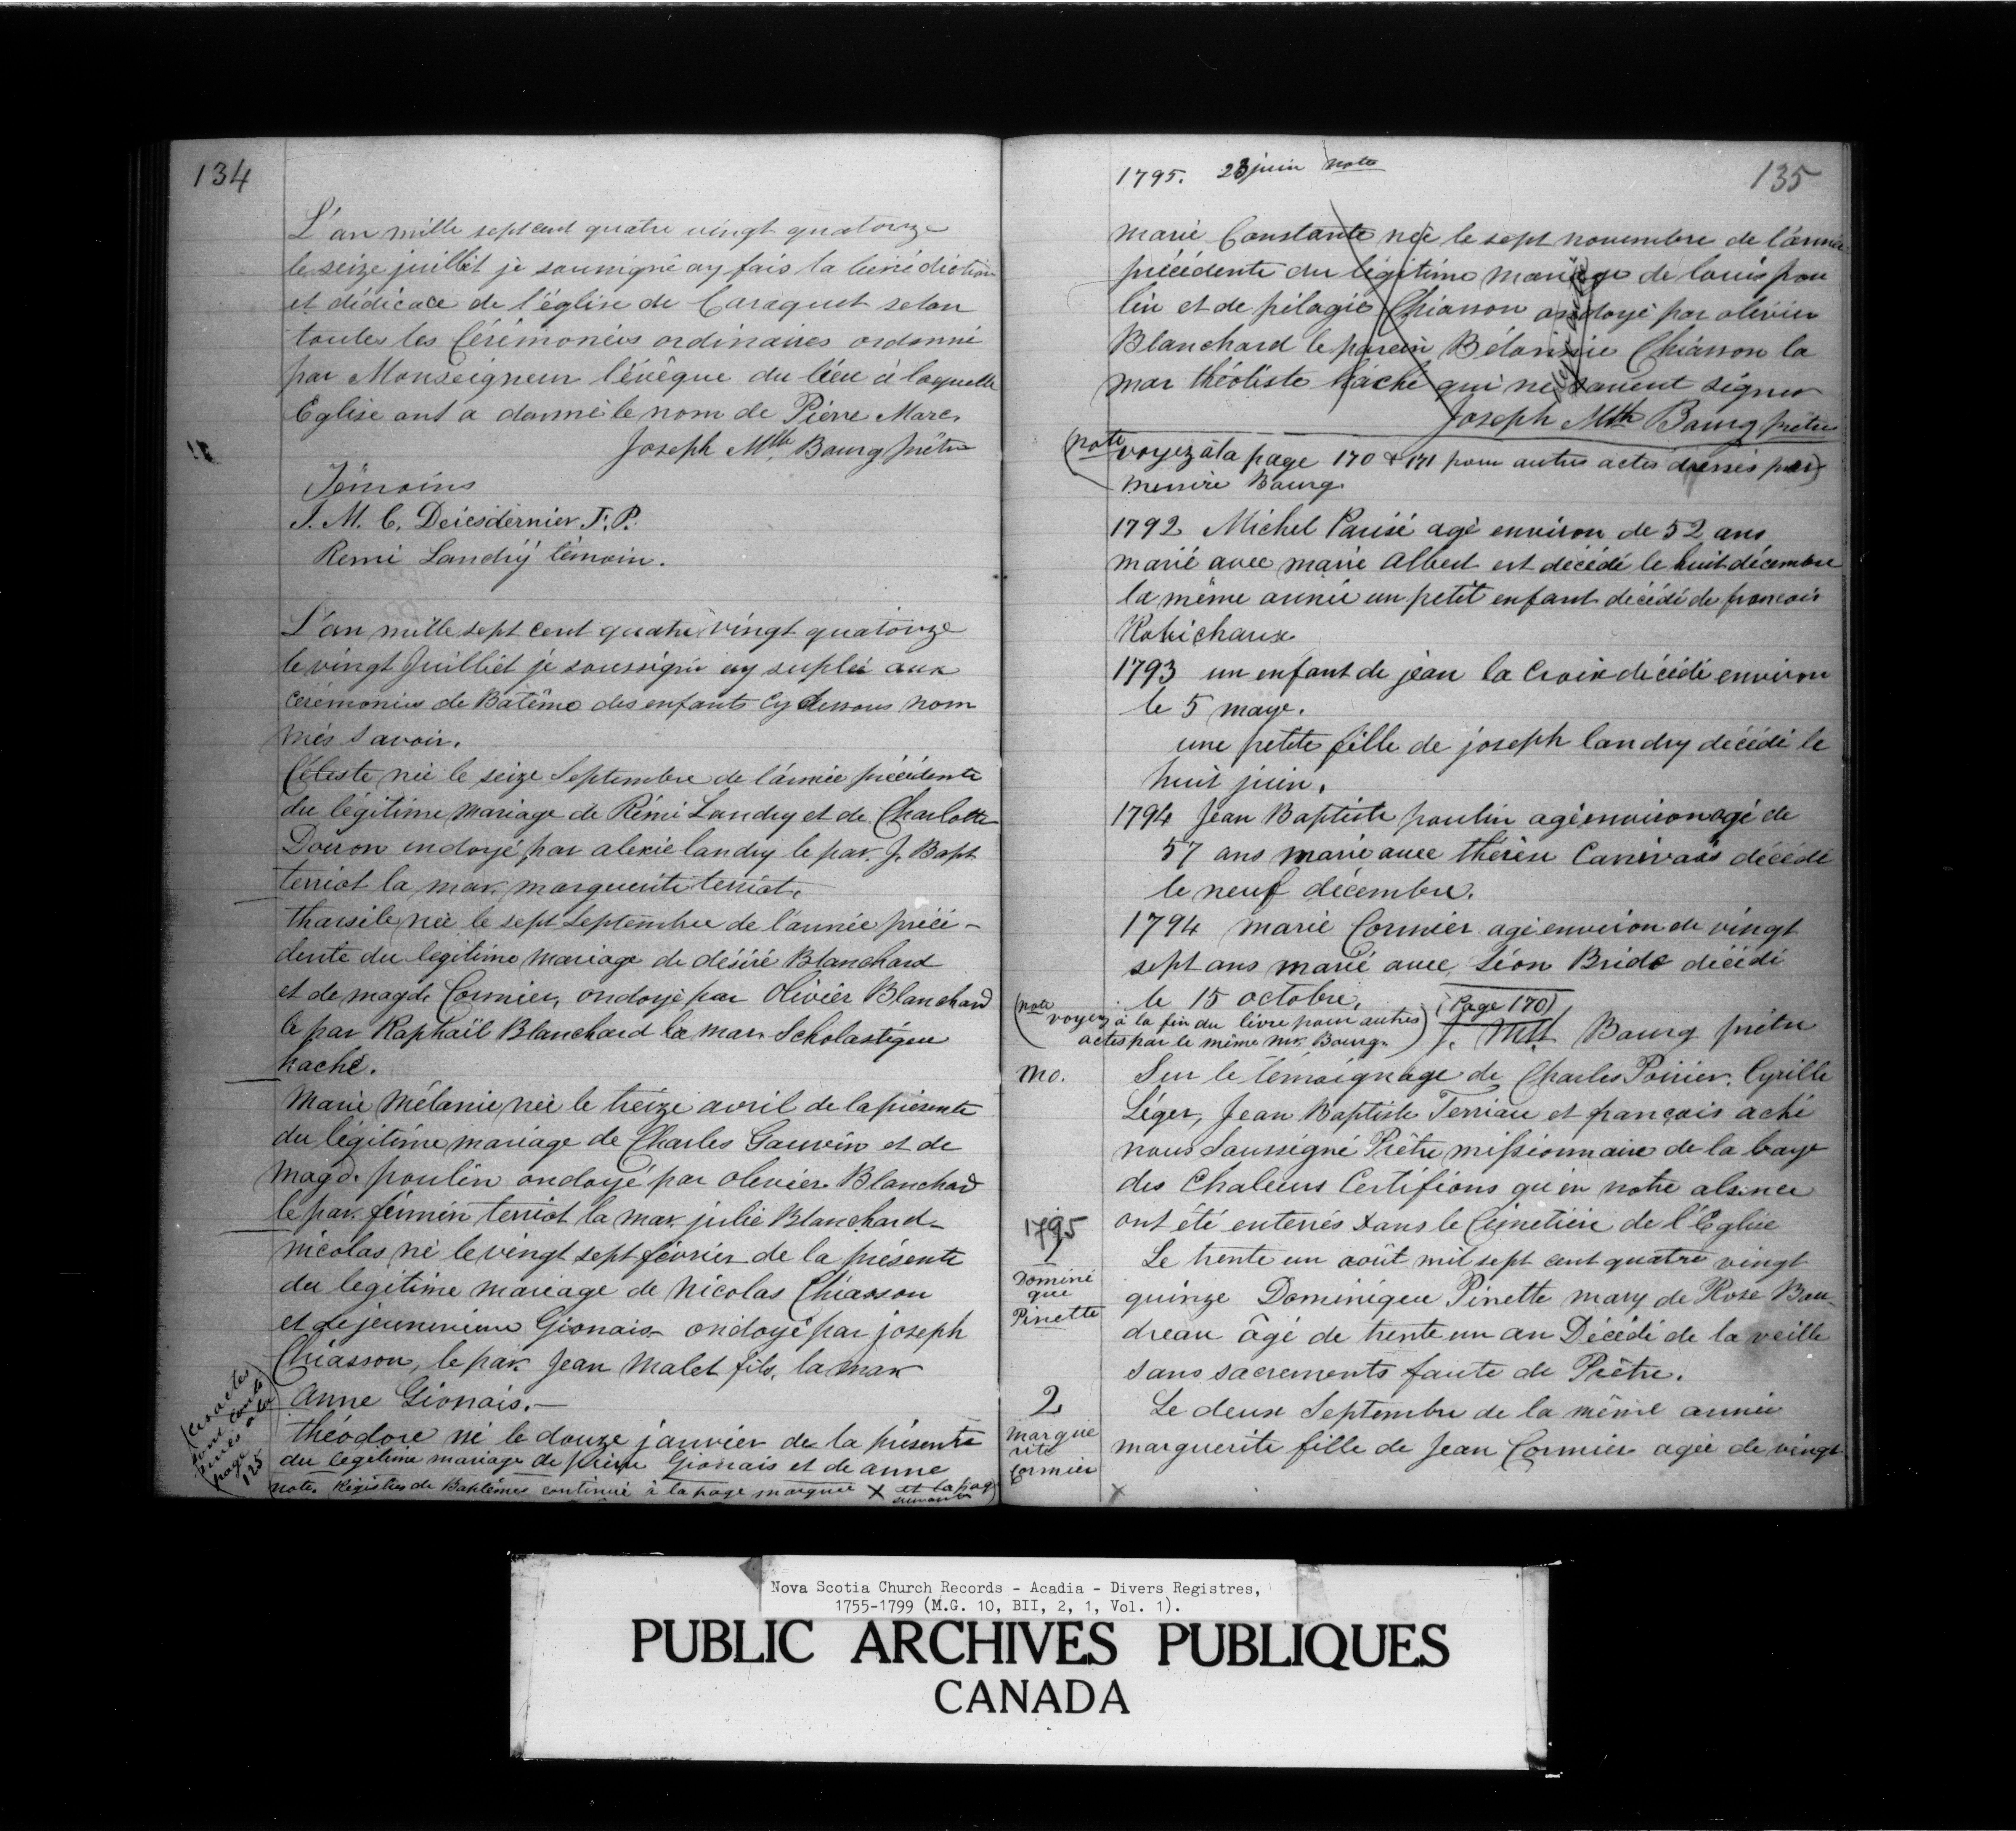 134
L'an mille sept cent quatre vingt quatorze
le seize juillet je sousigné ay fais la bénédiction
et dédicace de l'église de Caraquet selon
toutes les Cérémonies ordinaires ordonné
par Monseigneur l'évêque du lieu à laquelle
Eglise ont a donné le nom de Pierre Marc.
Joseph Mth Bourg prêtre
Témoins
J. M. C. Deiesdernier J. P.
Remi Landry témoin.
L'an mille sept cent quatre vingt quatorze
le vingt Juilliet je soussigné ay suplée aux
cérémonies de Batême des enfants cy dessous nom
més savoir.
Céleste née le seize Septembre de l'année précédente
du légitime mariage de Rémi Landry et de Charlotte
Doiron ondoyé par alexie landry le par. J. Bapt
terriot la mar. marguerite terriot.
tharsile née le sept septembre de l'année précé-
dente du legitime mariage de désiré Blanchard
et de magde Cormier, ondoyé par Olivier Blanchard
le par Raphaël Blanchard la mar. Scholastique
haché.
Marie Mélanie née le treize avril de la présente
du légitime mariage de Charles Gauvin et de
magd. poulin ondoyé par olivier Blanchard
le par. firmin terriot la mar. julie Blanchard-
nicolas né le vingt sept février de la présente
du legitime mariage de Nicolas Chiasson
et de Gionais- ondoyé par joseph
Chiasson, le par. Jean Malet fils, la mar
Anne Gionais.-
théodore né le douze janvier de la présente
du legitime mariage de pierre Gionais et de anne
note. Régistres de Baptêmes continué à la page marquée X et la page
suivante
(ces actes
sont conti
nués à la
page
125
1795. 23 juin note
135
marie Constante née le sept novembre de l'année
précédente du légitime mariage de louis pou
lin et de pélagie Chiasson ondoyé par olivier
Blanchard le parein Bélonnie Chiasson la
mar théotiste haché qui ne savent signer
Joseph Mth Bourg prêtre
(note voyez à la page 170 & 171 pour autres actes dressés par)
messire Bourg
1792 Michel Parisé agé environ de 52 ans
marié avec marie albert est décédé le huit décembre
la même année un petit enfant décédé de francois
Robichaux
1793 un enfant de jean la Croix décédé environ
le 5 maye.
une petite fille de joseph landry décédé le
huit juin.
1794 Jean Baptiste poulin agé environ agé de
57 ans marié avec thérèse Canivais décédé
le neuf décembre.
1794 marie Cormier agé environ de vingt
sept ans marié avec Léon Bride décédé
le 15 octobre. (Page 170)
(note voyez à la fin du livre pour autres
actes par le même Mr. Bourg.)
J. Mth Bourg prêtre
mo.
Sur le témoignage de Charles Poirier, Cyrille
Léger, Jean Baptiste Terriau et françois aché
nous Soussigné Prêtre missionnaire de la baye
des Chaleurs Certifions qu'en notre absence
ont été enterrés dans le Cimetière de l'Eglise
1795
1
Domini
que
Pinette
Le trente un août mil sept cent quatre vingt
quinze Dominique Pinette mary de Rose Bou-
dreau âgé de trente un an Décédé de la veille
sans sacrements faute de Prêtre.
2
Margue
rite
Cormier
Le deux Septembre de la même année
marguerite fille de Jean Cormier agée de vingt
X
Nova Scotia Church Records - Acadia - Divers Registres,
1755-1799 (M.G. 10, BII, 2, 1, Vol. 1).
PUBLIC ARCHIVES PUBLIQUES
CANADA